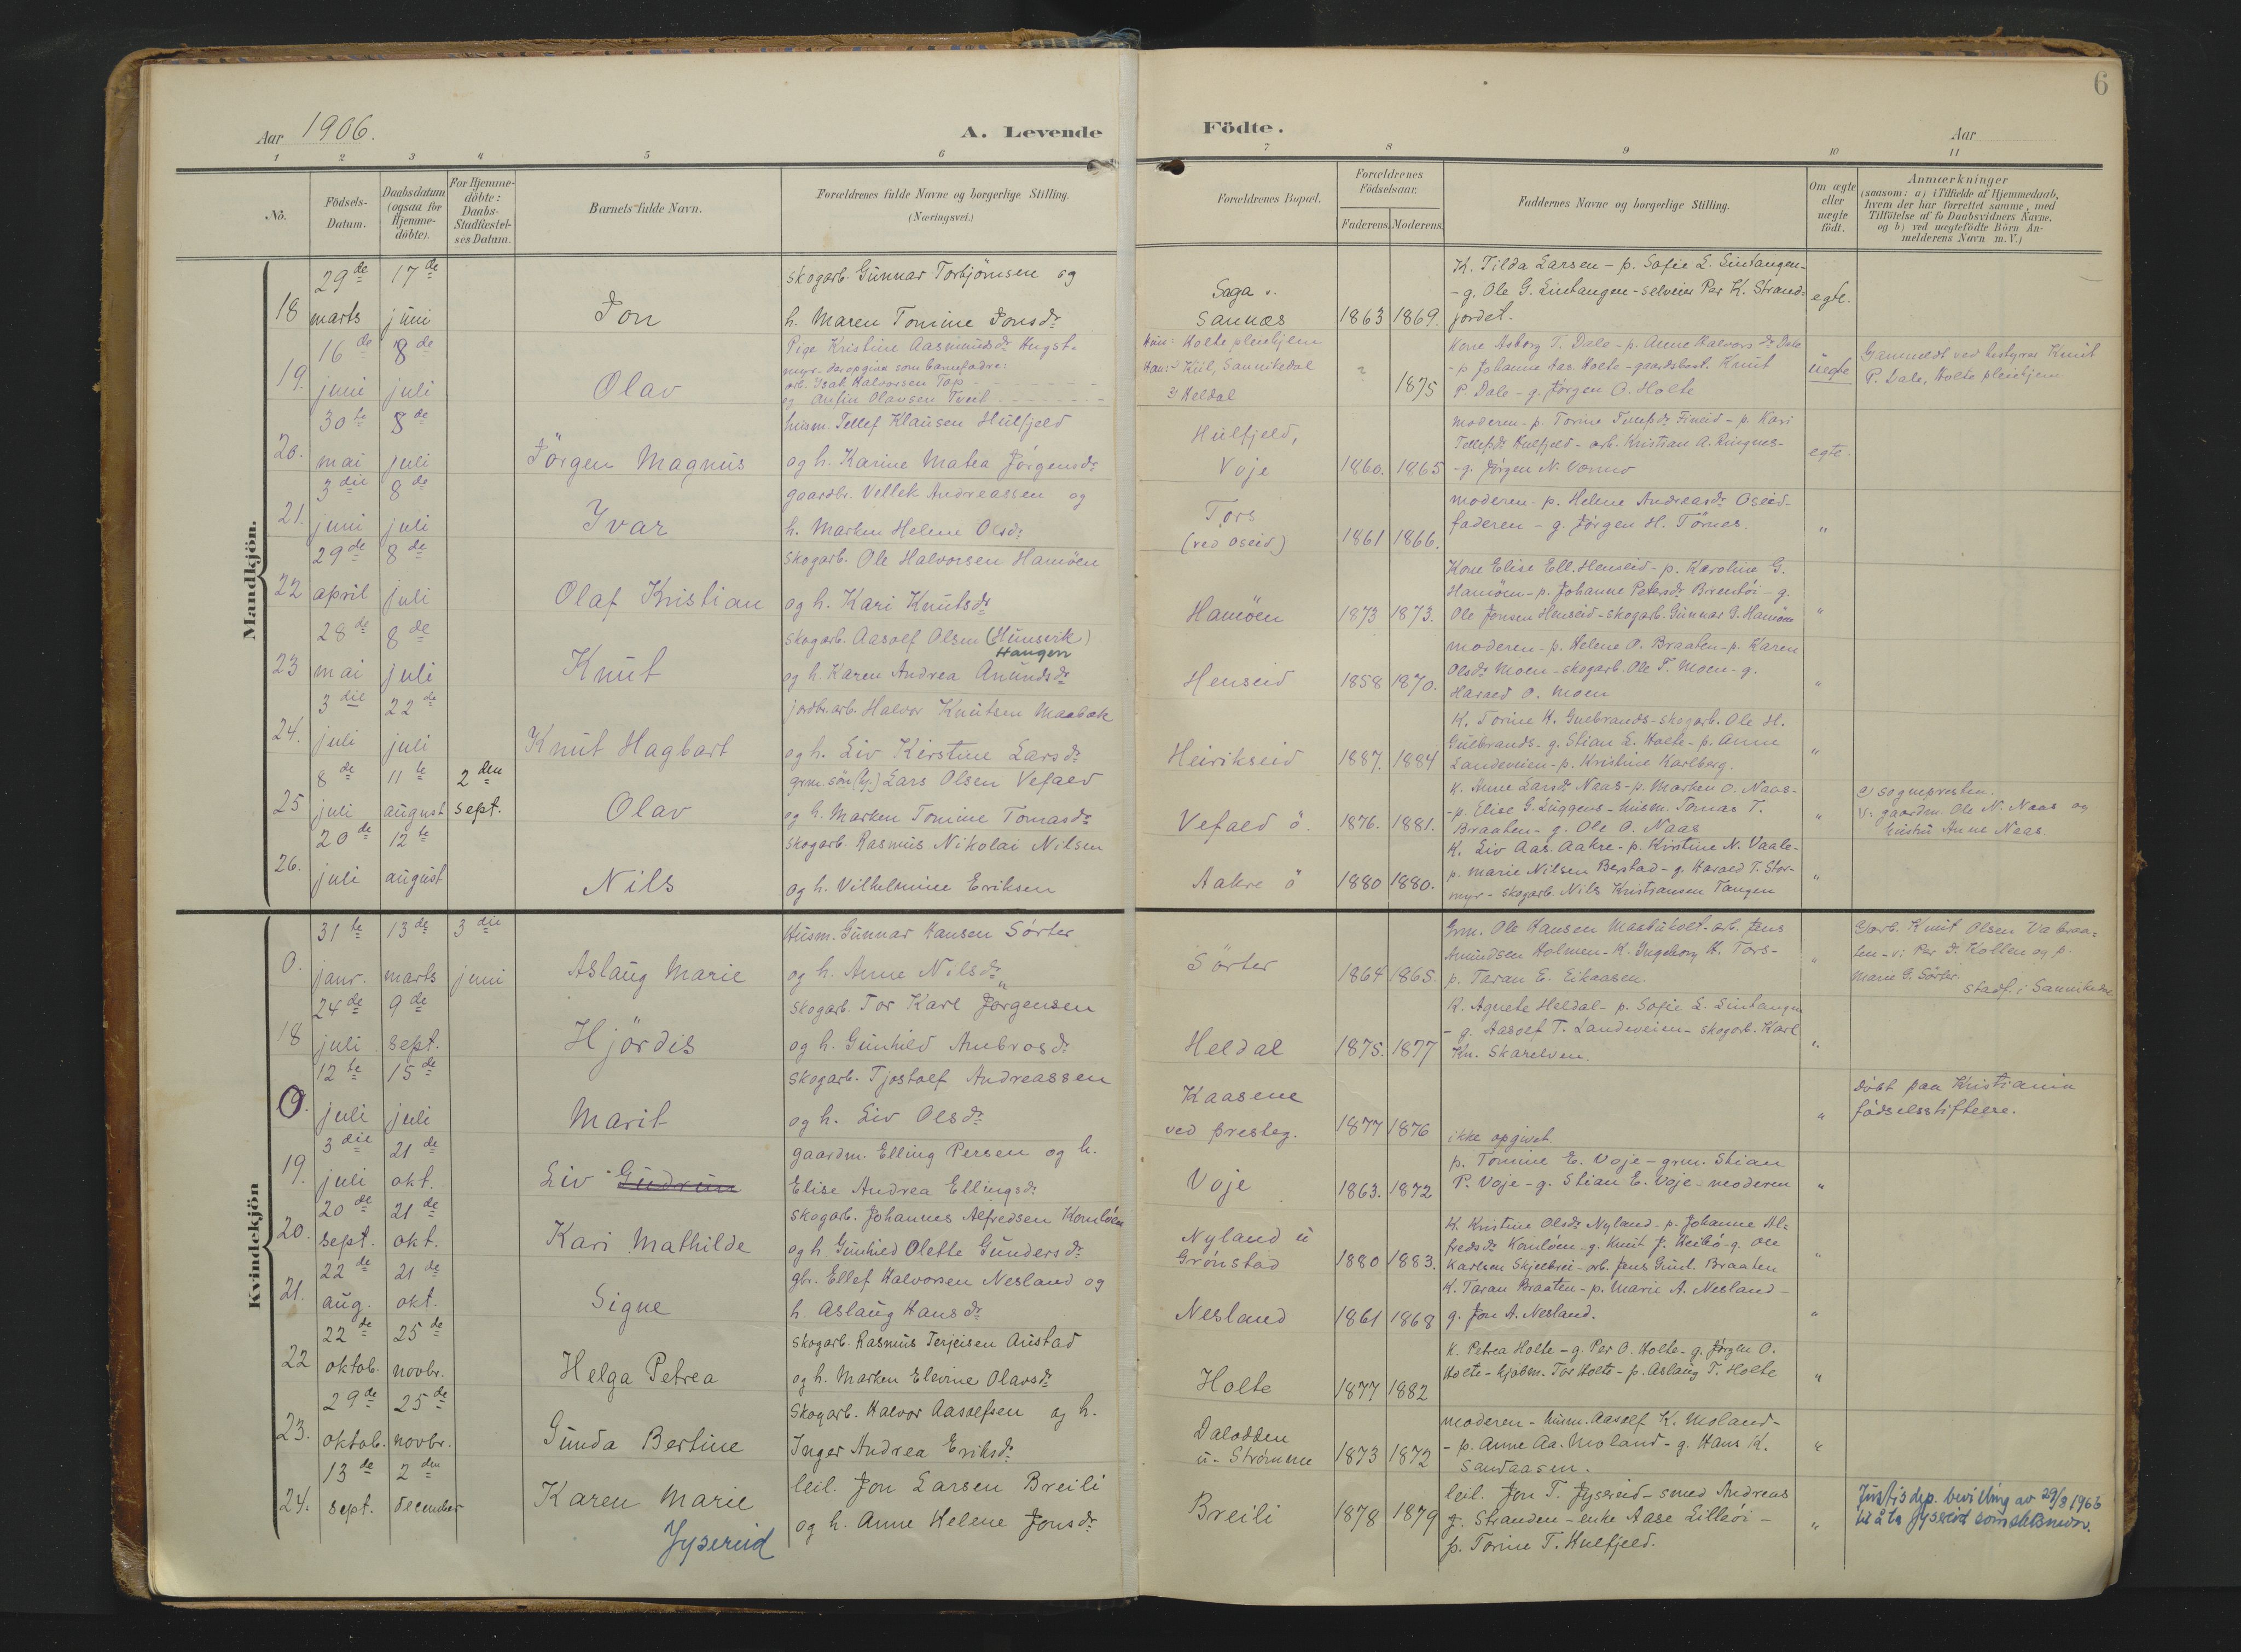 6
Aar 1906.
A. Levende
Födte.
Aar
1 2 3 4 5 6 7 8 9 10 11
No.
Födsels-Datum.
Daabsdatum (ogsaa for Hjemme-döbte).
For Hjemme-döbte: Daabs-Stadfæstel-ses Datum.
Barnets fulde Navn.
Forældrenes fulde Navne og borgerlige Stilling.
(Næringsvei.)
Forældrenes Bopæl.
Forældrenes Födselsaar.
Faderens. Moderens.
Faddernes Navne og borgerlige Stilling.
Om ægte eller uægte födt.
Anmærkninger
(saasom: a) i Tilfælde af Hjemmedaab,
hvem der har forrettet samme, med
Tilföielse af to Daabsvidners Navne.
og b) ved uægtefödte Börn An-
melderens Navn m. V.)
Mandkjön.
18 29de marts 17de juni
Jon
skogarb. Gunnar Torbjörnsen og
h. Maren Tomine Jonsdr
Saga v.
Sannæs
1863 1869.
K. Tilda Larsen - p. Sofie L. Lintangen-
- g. Ole G. Lintangen - selveier Per K. Strand-
jordet.
egte.
19. 16de juni 8de juli
Olav
Pige Kristine Aasmundsdr
myr. der opgiver som barnefadre:
arb. Isak Halvorsen Top
og Anfin Olavsen Tveit
Hun: Holte pleiehjem
Han: 1) Kiil, Sannikedal
2) Heldal
? 1875
Kone Asborg T. Dale - p. Anne Halvorsdr Dale
- p Johanne Aas. Holte - gaardsbest. Knut
P. Dale - g. Jörgen O. Holte
uegte
Ganmeldt ved bestyrer Knut
P. Dale, Holte pleiehjem
20. 30te mai 8de juli
Jörgen Magnus
husm. Tellef Klausen Hulfjeld
og h. Karine Matea Jörgensdr
Hulfjeld,
Voje
1860. 1865
moderen - p. Torine Tellefsdr - p. Kari
Tellefsdr Hulfjeld - arb. Kristian A. Ringnes-
- g. Jörgen N. Vormo
egte.
21. 3die juni 8de juli
Ivar
gaardbr. Vellek Andreassen og
h. Marken Helene Olsdr
Tors
(ved Oseid)
1861 1866.
moderen - p. Helene Andreasdr Oseid-
faderen - g. Jörgen H. Törnes.
"
22 29de april 8de juli
Olaf Kristian
skogarb. Ole Halvorsen Hamöen
og h. Kari Knutsdr
Hamöen
1873 1873.
Kone Elise Ell. Henseid - p. Karoline G.
Hamöen - p. Johanne Petersdr Brentöi - g.
Ole Jensen Henseid - skogarb. Gunnar G. Hamöen
"
23 28de mai 8de juli
Knut
skogarb. Aasolf Olsen (Hunsvik)
Haugen
og h. Karen Andrea Anundsdr
Henseid
1858 1870.
moderen - p. Helene O. Braaten - p. Karen
Olsdr Moen - skogarb. Ole T. Moen - g.
Harald O. Moen
"
24. 3die juli 22de juli
Knut Hagbart
jordbr.arb. Halvor Knutsen Maabæk
og h. Liv Kirstine Larsdr
Heirikseid
1887. 1884
K. Torine H. Gulbrands - skogarb. Ole H.
Gulbrands - g. Stian L. Holte - p. Anne
Landeveien - p. Kristine Karlberg.
"
25 8de juli 11te august 2den sept.
Olav
grm. sön (Gj.) Lars Olsen Vefald
og h. Marken Tomine Tomasdr
Vefald ö.
1876. 1881.
K. Anne Larsdr Naas - p. Marken O. Naas-
- p. Elise G. Luggens - husm. Tomas T.
Braaten - g. Ole O. Naas
"
a) sognepresten.
v: gaardm. Ole N. Naas og
hustru Anne Naas.
26. 20de juli 12te august
Nils
skogarb. Rasmus Nikolai Nilsen
og h. Vilhelmine Eriksen
Aakre ö
1880 1880.
K. Liv Aas. Aakre - p. Kirstine N. Vaale-
p. Marie Nilsen Berstad - g. Harald T. Stor-
myr - skogarb. Nils Kristiansen Tangen
"
Kvindekjön
0. 31te janr. 13de marts 3die juni
Aslaug Marie
Husm. Gunnar Hansen Sörter
og h. Anne Nilsdr
Sörter
1864 1865.
Grm. Ole Hansen - arb. Jens
Amundsen Holmen - K. Ingeborg K. Tors-
p. Taran E. Eikaasen.
"
Knut Olsen Vabraa-
ten - v: Per J. Kollen og p.
Marie G. Sörter.
stadf. i Sannikedal
18 24de juli 9de sept.
Hjördis
skogarb. Tor Karl Jörgensen
og h. Gunhild Ambrosdr
Heldal
1875. 1877
K. Agnete Heldal - p. Sofie L. Lintangen
- g. Aasolf T. Landeveien - skogarb. Karl
Kn. Skarelven.
"
0. 12te juli 15de juli
Marit
skogarb. Tjostolf Andreassen
og h. Liv Olsdr
Kaasene
ved presteg.
1877 1876
ikke opgivet
"
Döbt paa Kristiania
födselsstiftelse.
19. 3die juli 21de okt.
Liv Gudrun
gaardm. Elling Persen og h.
Elise Andrea Ellingsdr
Voje
1863. 1872
p. Tomine E. Voje - grm. Stian
P. Voje - g. Stian E. Voje - moderen
"
20. 20de sept. 21de okt.
Kari Mathilde
skogarb. Johannes Alfredsen Komlöen
og h. Gunhild Olette Gundersdr
Nyland u
Grönstad
1880 1883.
K. Kristine Olsdr Nyland - p. Johanne Al-
fredsdr Komlöen - g. Knut J. - g. Ole
Karlsen Skjelbrei - arb. Jens Gunt. Braaten
"
21. 22de aug. 21de okt.
Signe
gbr. Ellef Halvorsen Nesland og
h. Aslaug Hansdr
Nesland
1861 1868
K. Taran Braaten - p. Marie A. Nesland -
g. Jon A. Nesland.
"
22 22de oktob. 25de novbr.
Helga Petrea
skogarb. Rasmus Terjeisen Austad
og h. Marken Elevine Olavsdr
Holte
1877 1882
K. Petrea Holte - g. Per O. Holte - g. Jörgen O.
Holte - kjöbm. Tor Holte - p. Aslaug T. Holte
"
23. 29de oktob. 25de novbr.
Gunda Bertine
Skogarb. Halvor Aasolfsen og h.
Inger Andrea Eriksdr
Dalodden
u. Strömme
1873 1872
moderen - husm. Aasolf K. Moland-
- p. Anne Aa. Moland - g. Hans K.
Sandaasen.
"
24. 13de sept. 2den december
Karen Marie
Jysereid
leil. Jon Larsen Breili
og h. Anne Helene Jonsdr
Breili
1878 1879
leil. Jon T. Jysereid - smed Andreas
J. Stranden - enke Aase Lilleöi -
p. Torine T. Hulfjeld.
"
Justisdep. bevilling av 29/8 1966
til å ta Jysereid som slektsnavn.